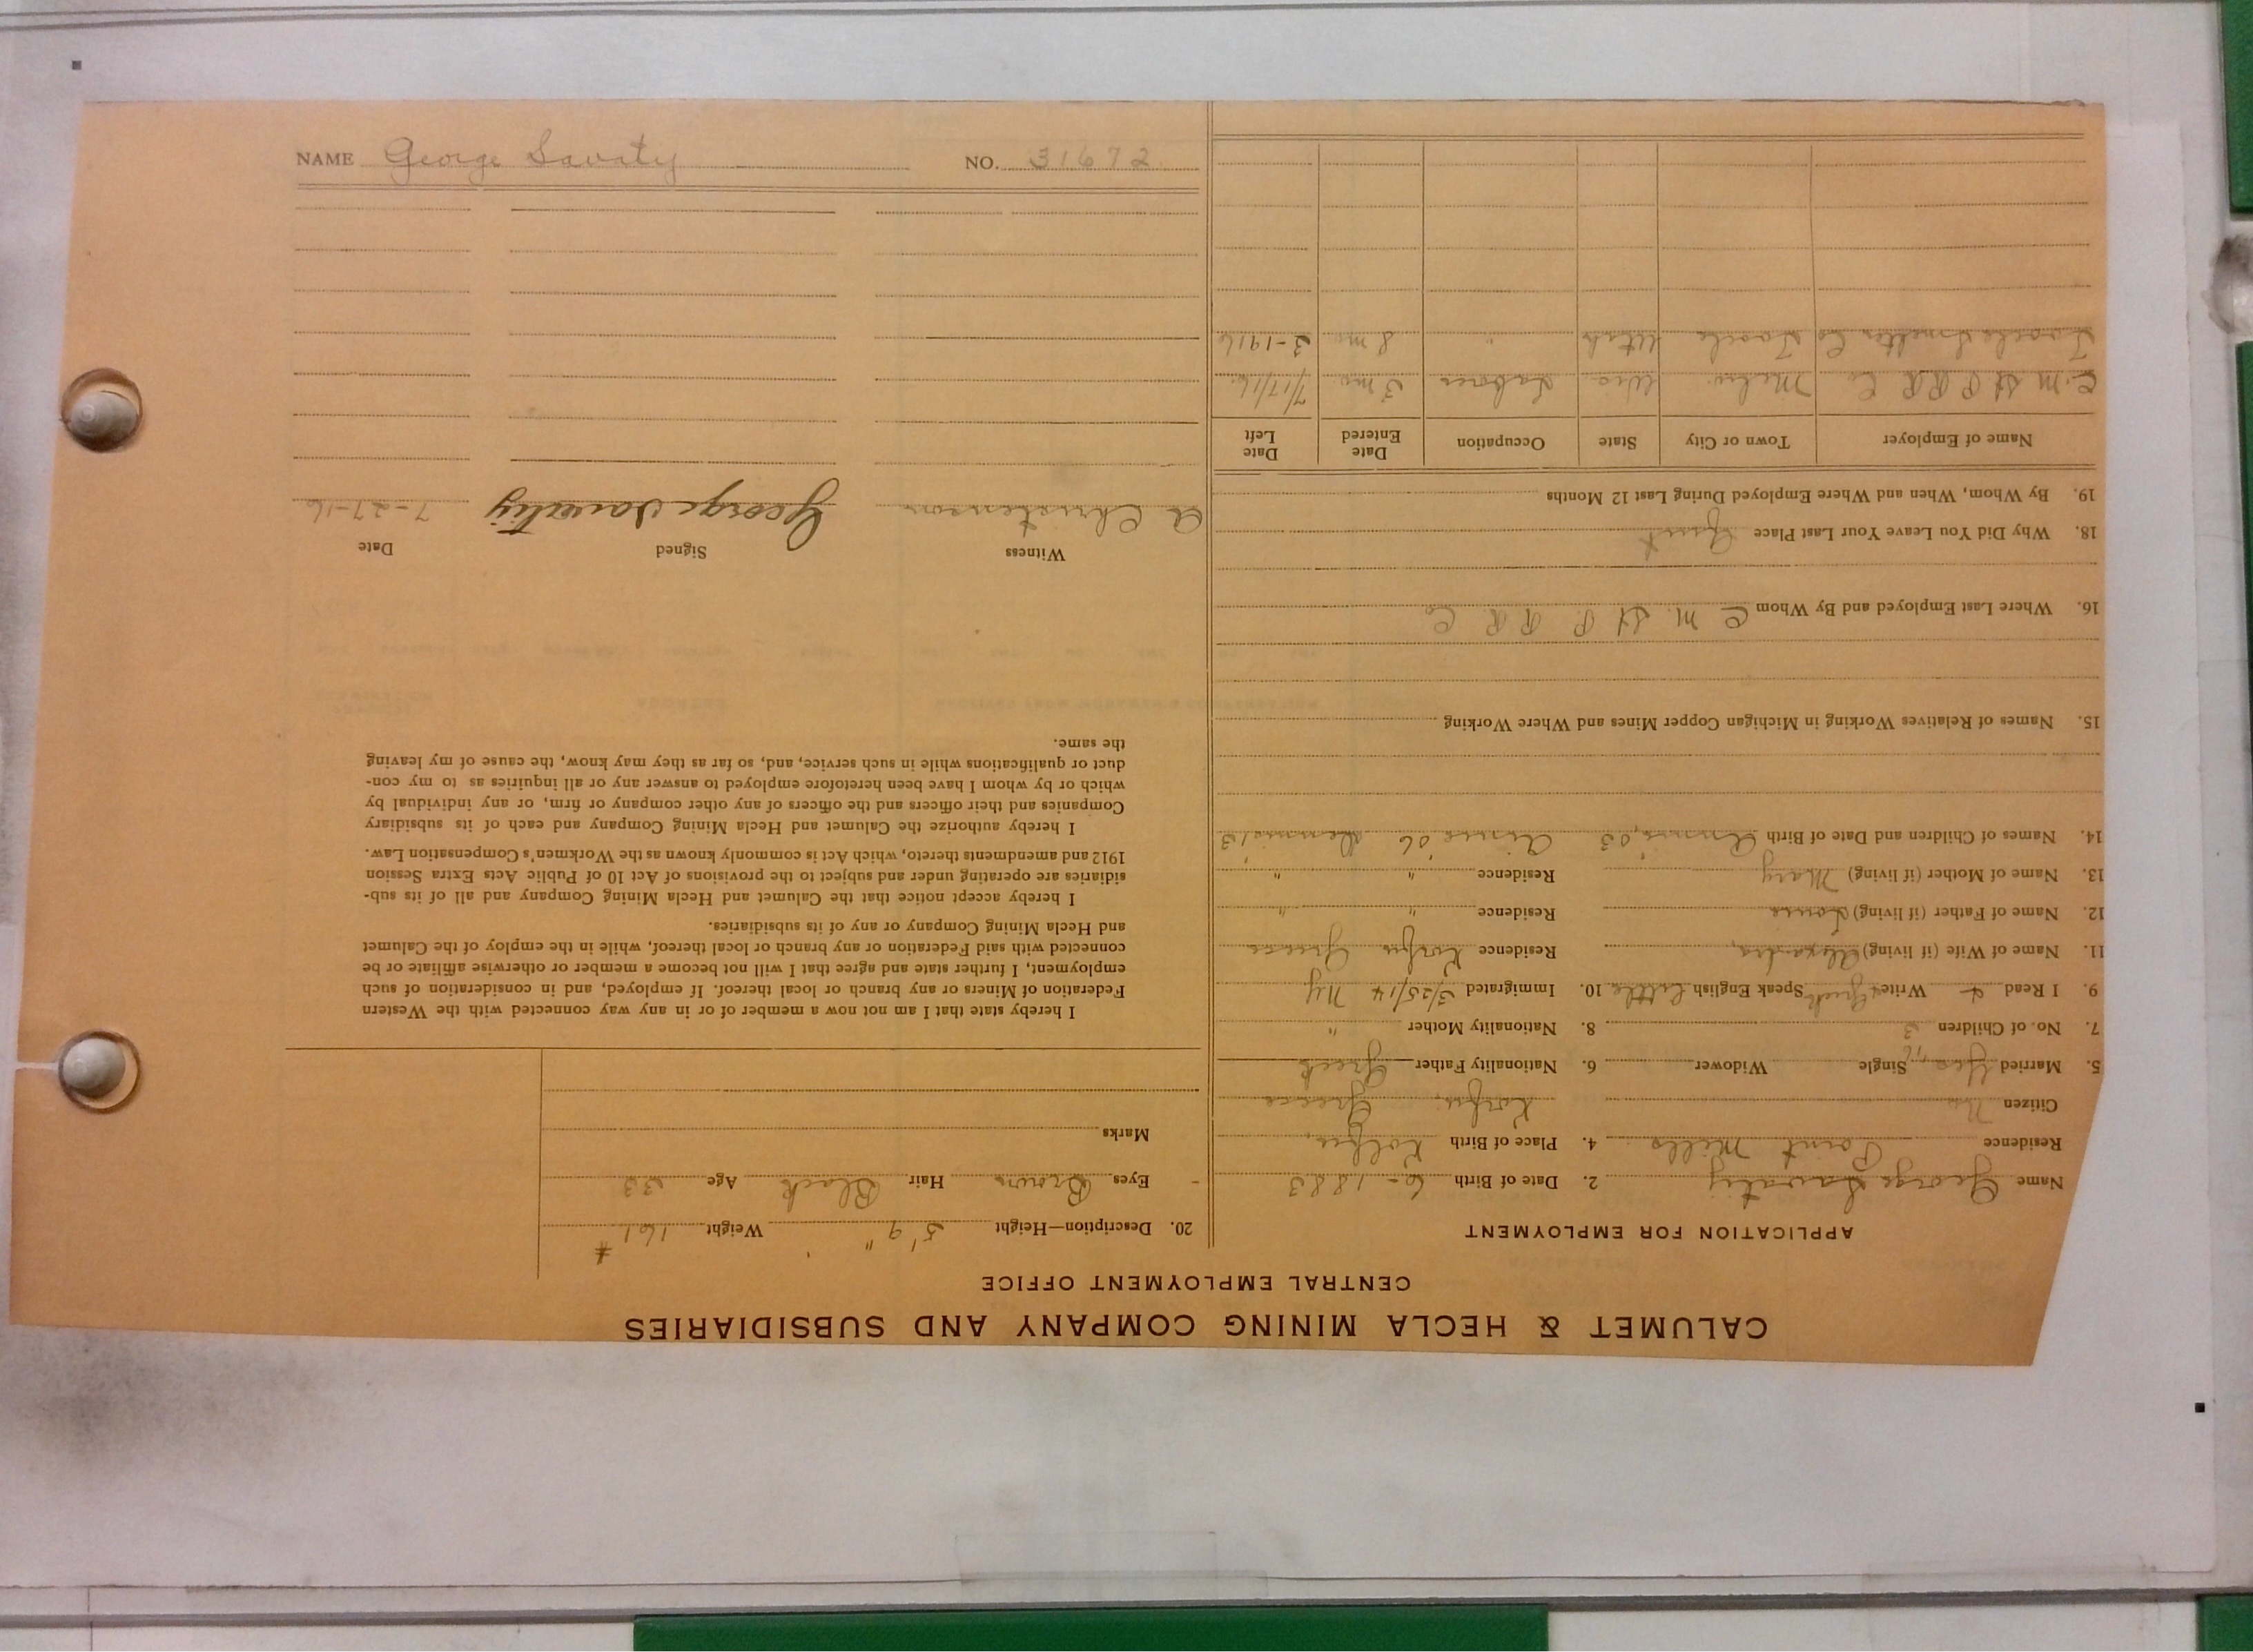 CALUMET & HECLA MINING COMPANY AND SUBSIDIARIES
CENTRAL EMPLOYMENT OFFICE
APPLICATION FOR EMPLOYMENT
Name George Savatiy 2. Date of Birth 6-1883
Residence Point Mills 4. Place of Birth
Citizen No Korfu, Greece
5. Married Yes Single Widower 6. Nationality Father Greek
7. No. of Children 3 8. Nationality Mother "
9. I Read & Write Greek Speak English Little 10. Immigrated 3/25/14 NY
11. Name of Wife (if living) Alexandra, Residence Korfu Greece
12. Name of Father (if living) Louis Residence " "
13. Name of Mother (if living) Mary Residence " "
14. Names of Children and Date of Birth '03 '06 '13
15. Names of Relatives Working in Michigan Copper Mines and Where Working
16. Where Last Employed and By Whom C M St P R R Co
18. Why Did You Leave Your Last Place Quit
19. By Whom, When and Where Employed During Last 12 Months
Name of Employer Town or City State Occupation Date Entered Date Left
C. M St P R R Co Milw. Wis Labour 3 mo 7/17/16
Tooele Smelter Co Tooele Utah " 8 mo 3-1916
20. Description—Height 5' 9" Weight 161 #
Eyes Brown Hair Black Age 33
Marks
I hereby state that I am not now a member of or in any way connected with the Western
Federation of Miners or any branch or local thereof. If employed, and in consideration of such
employment, I further state and agree that I will not become a member or otherwise affiliate or be
connected with said Federation or any branch or local thereof, while in the employ of the Calumet
and Hecla Mining Company or any of its subsidiaries.
I hereby accept notice that the Calumet and Hecla Mining Company and all of its sub-
sidiaries are operating under and subject to the provisions of Act 10 of Public Acts Extra Session
1912 and amendments thereto, which Act is commonly known as the Workmen's Compensation Law.
I hereby authorize the Calumet and Hecla Mining Company and each of its subsidiary
Companies and their officers and the officers of any other company or firm, or any individual by
which or by whom I have been heretofore employed to answer any or all inquiries as to my con-
duct or qualifications while in such service, and, so far as they may know, the cause of my leaving
the same.
Witness Signed Date
A Christenson George Savatiy 7-27-16
NAME George Savaty NO. 31672